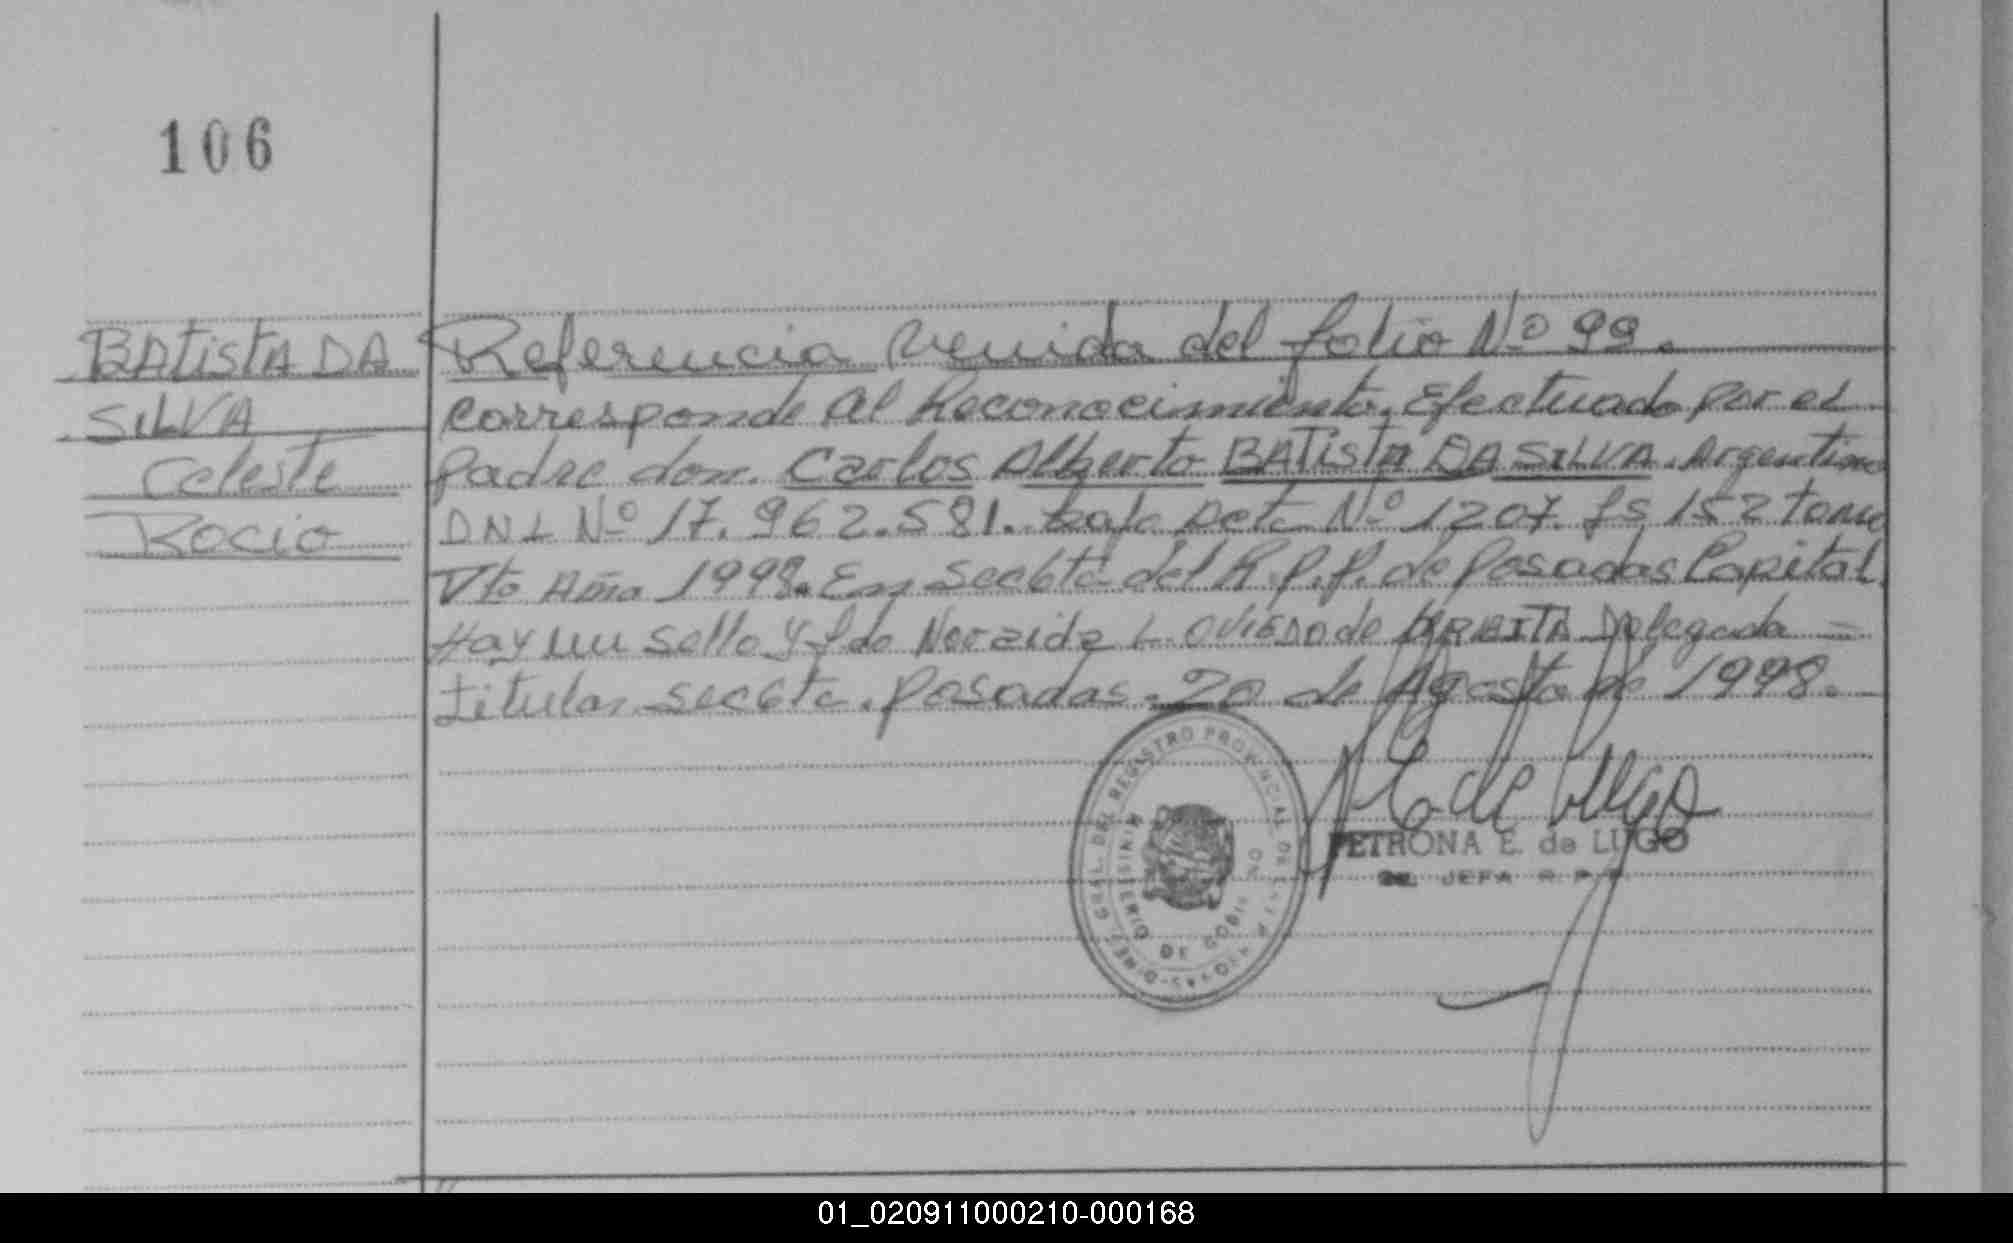 106
BATISTA DA
SILVA
Celeste
Rocio
Referencia venida del folio Nº 99.
Corresponde al Reconocimiento. Efectuado por el
padre don. Carlos Alberto BATISTA DA SILVA. Argentino
DNI Nº 17.962.581. bajo Acta Nº 1207. fs 152 tomo
Vto Año 1998. En Secc 6ta del R.P.P. de Posadas Capital.
Hay un sello y fdo Noraida L. OVIEDO de Delegada =
titular secc 6ta. Posadas. 20 de Agosto de 1998.
DIREC. GRAL. DEL REGISTRO PROVINCIAL DE LAS PERSONAS
MINISTERIO DE GOBIERNO
E de Lugo
PETRONA E. de LUGO
JEFA R.P.P.
01_020911000210-000168